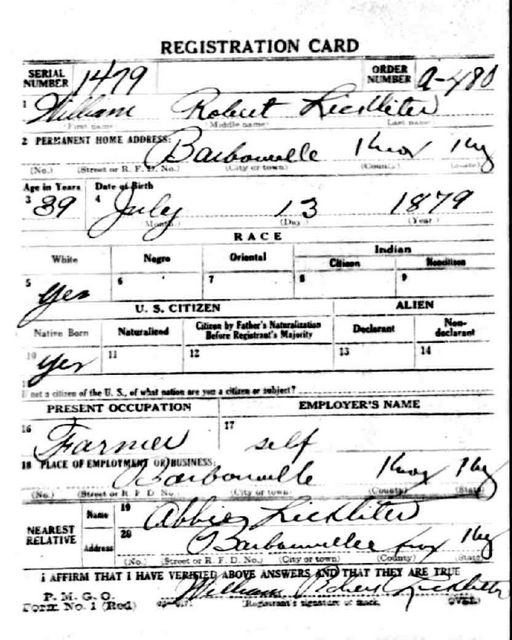 REGISTRATION CARD
SERIAL NUMBER 1479 ORDER NUMBER A-480
1 William Robert Lickliter
(First name) (Middle name) (Last name)
2 PERMANENT HOME ADDRESS: Barbourville Knox Ky
(No.) (Street or R. F. D. No.) (City or town) (County) (State)
Age in Years Date of Birth
3 39 4 July 13 1879
(Month) (Day) (Year)
RACE
White Negro Oriental Indian
Citizen Noncitizen
5 Yes 6 7 8 9
U. S. CITIZEN ALIEN
Native Born Naturalized Citizen by Father's Naturalization Before Registrant's Majority Declarant Non-declarant
10 Yes 11 12 13 14
If not a citizen of the U. S., of what nation are you a citizen or subject?
PRESENT OCCUPATION EMPLOYER'S NAME
16 Farmer 17 self
18 PLACE OF EMPLOYMENT OR BUSINESS: Barbourville Knox Ky
(No.) (Street or R. F. D. No.) (City or town) (County) (State)
NEAREST RELATIVE Name 19 Abbie Lickliter
Address 20 Barbourville Knox Ky
(No.) (Street or R. F. D. No.) (City or town) (County) (State)
I AFFIRM THAT I HAVE VERIFIED ABOVE ANSWERS AND THAT THEY ARE TRUE
P. M. G. O.
Form No. 1 (Red) William Robert Lickliter
(Registrant's signature or mark) (OVER)